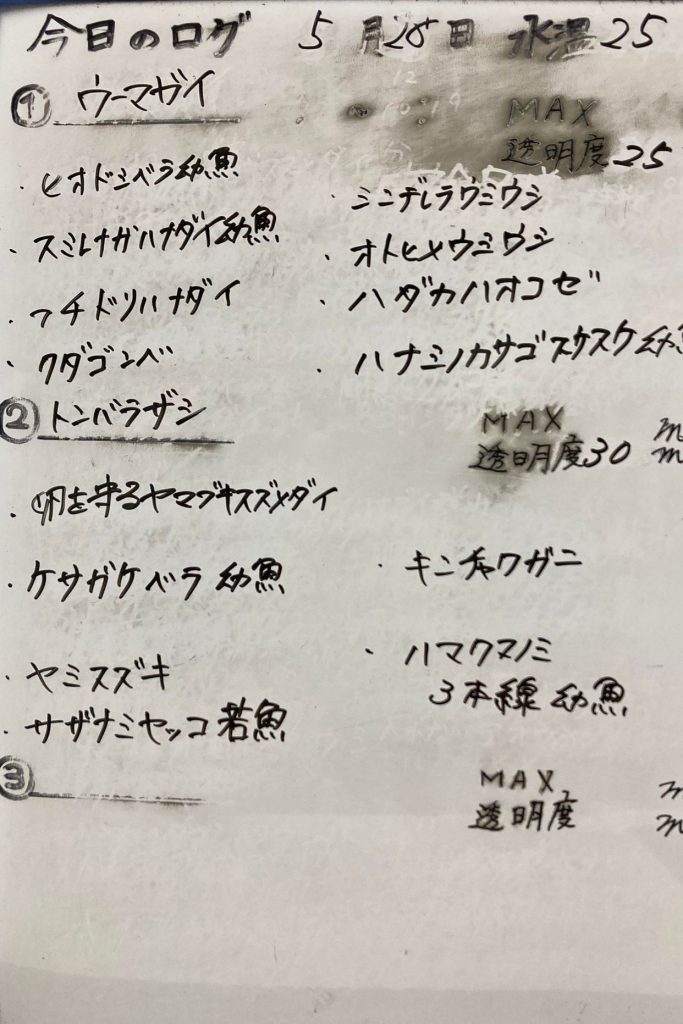 今日のログ 5月25日 水温25
① ウーマガイ
MAX
透明度25
・ヒオドシベラ幼魚
・スミレナガハナダイ幼魚
・フチドリハナダイ
・クダゴンベ
・シンデレラウミウシ
・オトヒメウミウシ
・ハダカハオコゼ
・ハナミノカサゴスケスケ幼魚
② トンバラザシ
MAX m
透明度30 m
・卵を守るヤマブキスズメダイ
・ケサガケベラ幼魚
・ヤミスズキ
・サザナミヤッコ若魚
・キンチャクガニ
・ハマクマノミ
3本線幼魚
③
MAX m
透明度 m